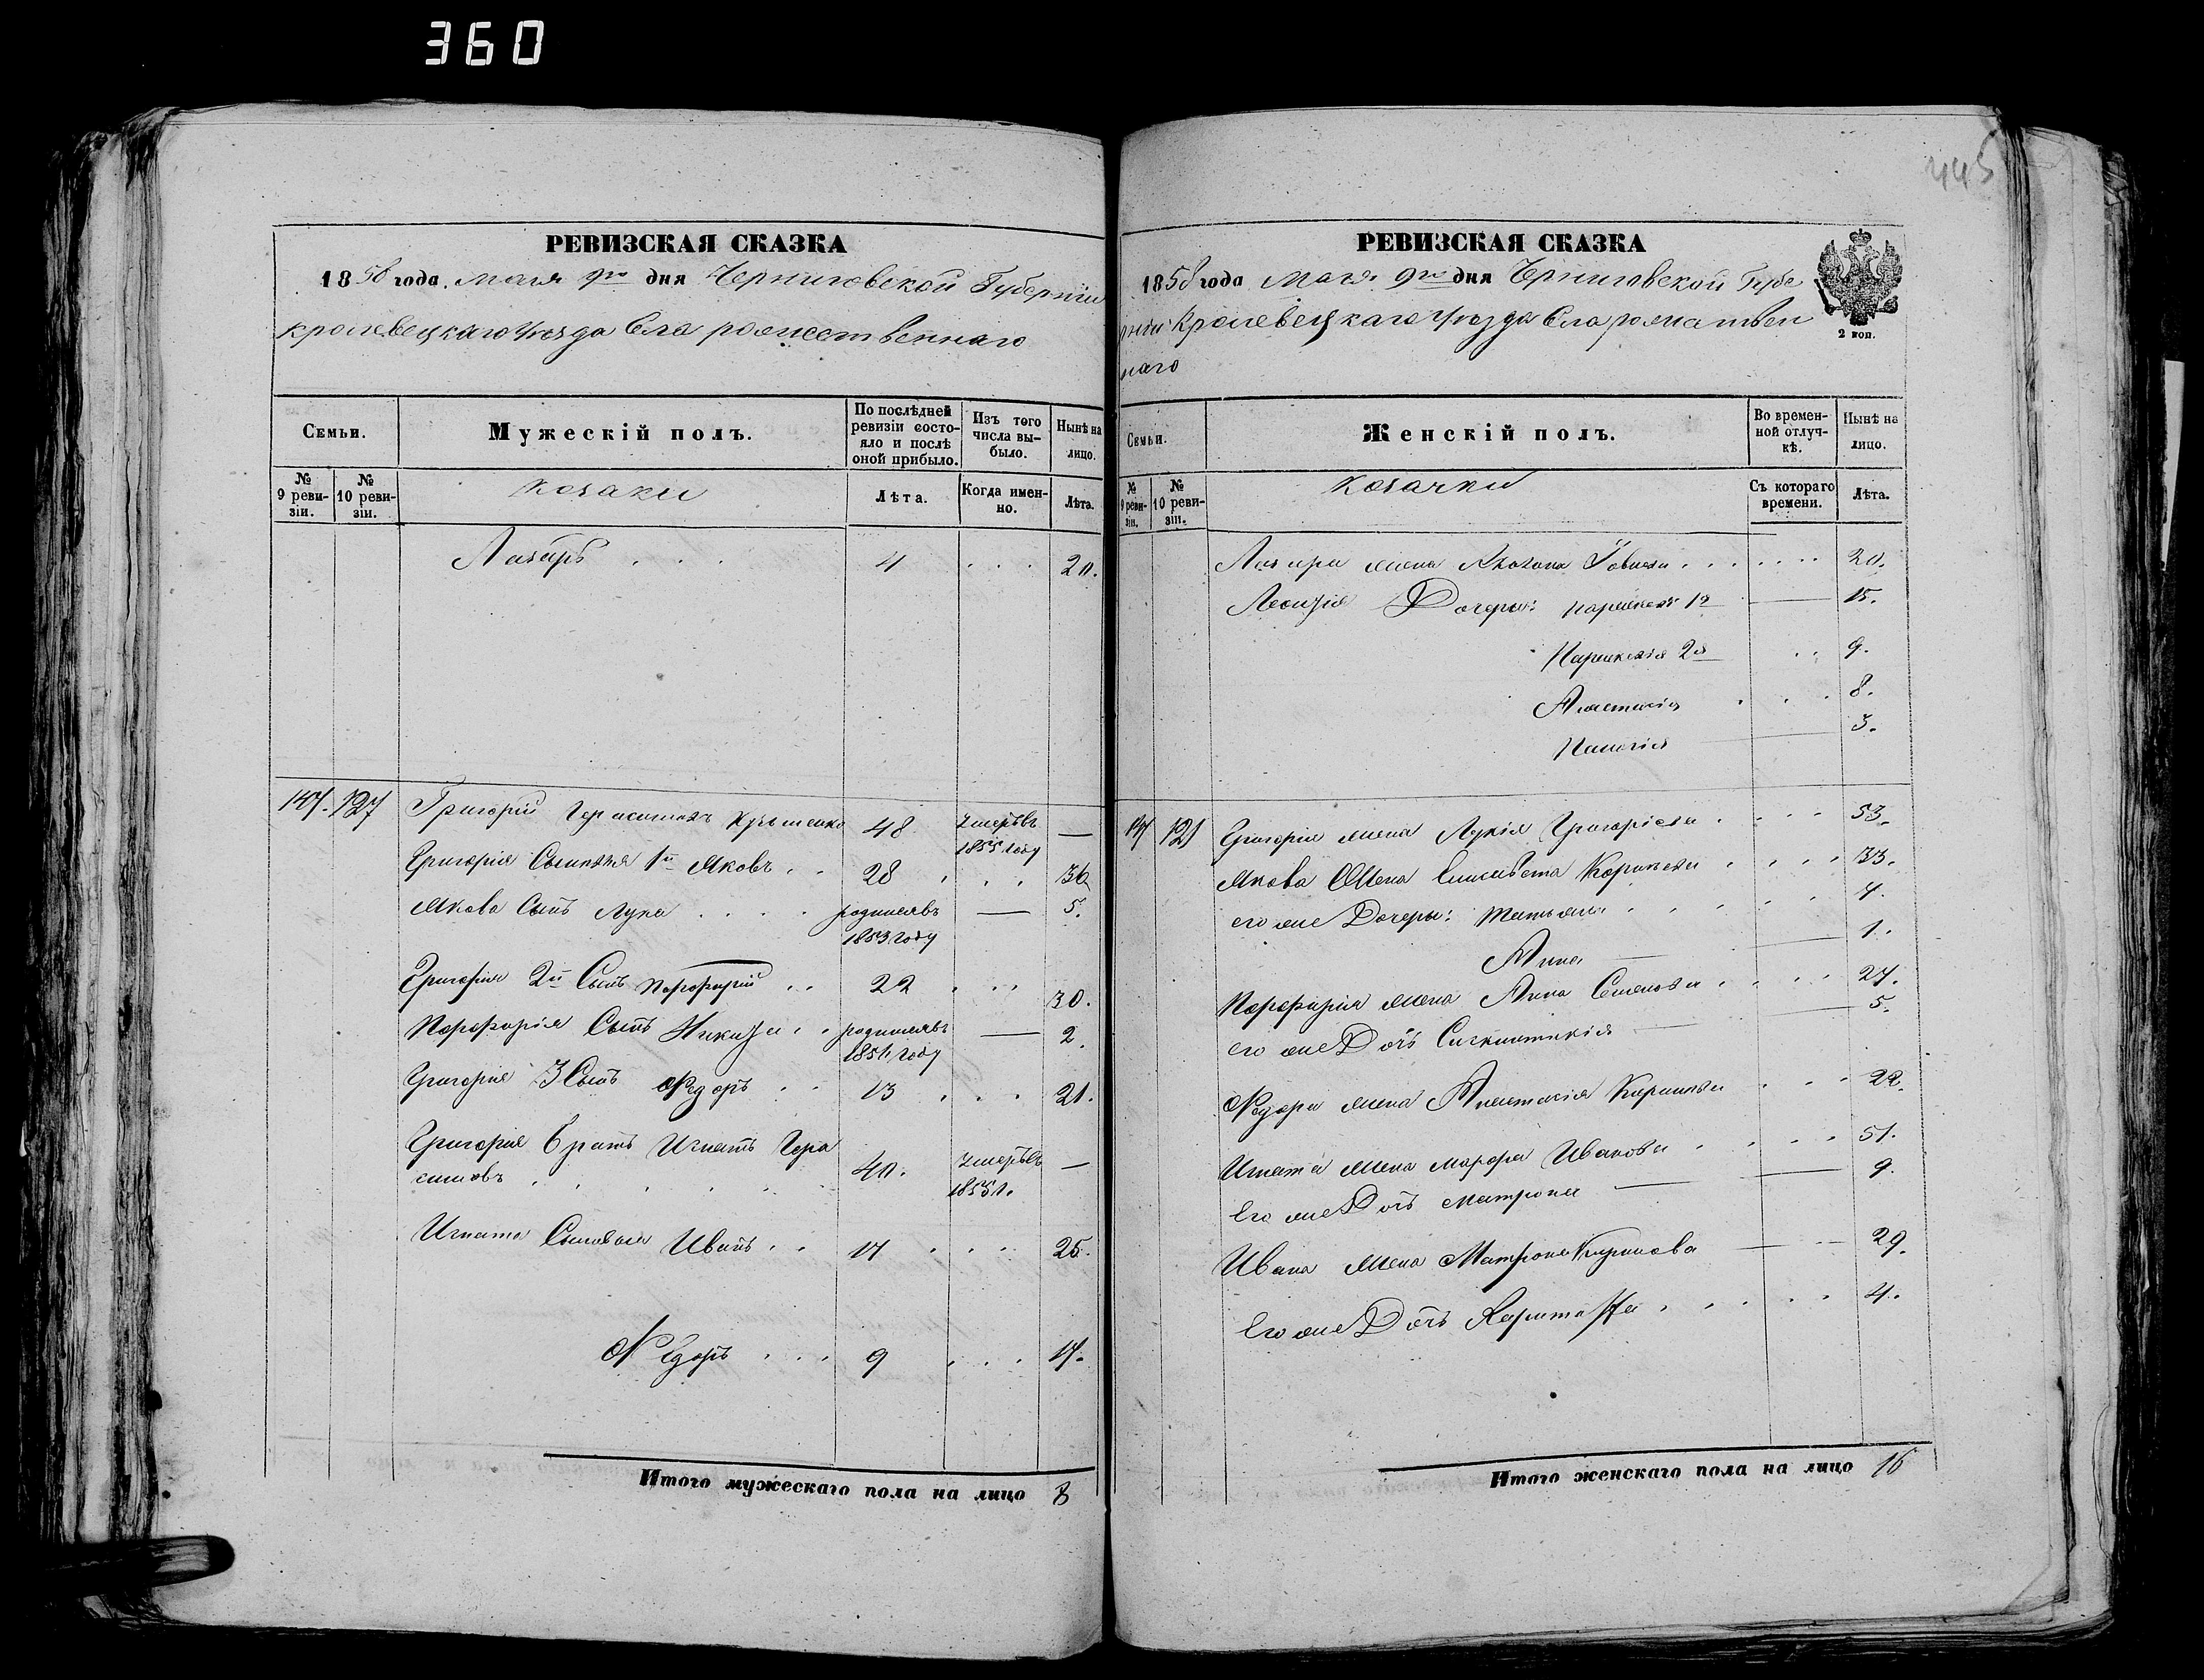 360
445
РЕВИЗСКАЯ СКАЗКА
1858 года мая 9го дня Черниговской Губерніи
кролевецкаго уѣзда Села рожественнаго
Семьи.
Мужескій полъ.
По послѣдней ревизіи состояло и послѣ оной прибыло.
Изъ того числа выбыло.
Нынѣ на лицо.
№ 9 ревизіи.
№ 10 ревизіи.
козаки
Лѣта.
Когда именно.
Лѣта.
Лазарь 4 20.
147. 127 Григорій Герасимовъ 48 умеръ въ 1855 году —
Григорія Сыновья 1й Яковъ 28 36
Якова Сынъ Лука родился въ 1853 году — 5.
Григорія 2й Сынъ Порфирій 22 30.
Порфирія Сынъ Никита родился въ году — 2.
Григорія 3 Сынъ Федоръ 13 21.
Григорія братъ Игнатъ Гера
симовъ 40. умеръ въ 1855 г. —
Игната Сыновья Иванъ 17 25.
Федоръ 9 17.
Итого мужескаго пола на лицо 8
РЕВИЗСКАЯ СКАЗКА
1858 года Мая 9го дня Черниговской Губе
рніи Кролевецкаго уѣзда Села рожествен
наго
2 коп.
Семьи.
Женскій полъ.
Во временной отлучкѣ.
Нынѣ на лицо.
№ 9 ревизіи.
№ 10 ревизіи.
козачки
Съ котораго времени.
Лѣта.
Лазаря жена 20.
Дочери: параскевія 1я — 15.
Параскевія 2я 9.
Анастасія 8.
Пелагія — 3.
147 127 Григорія жена Лукія Григоріева 53.
Якова Жена Елисавета 33.
его же Дочери: Татьяна 7.
Анна — 1.
Порфирія жена Анна Семенова 27.
его же Дочь — 5.
Федора жена Анастасія 22.
Игната жена Марфа Иванова 51.
Его же Дочь Матрона — 9.
Ивана Жена Матрона — 29.
Его же Дочь Харитина 4.
Итого женскаго пола на лицо 16